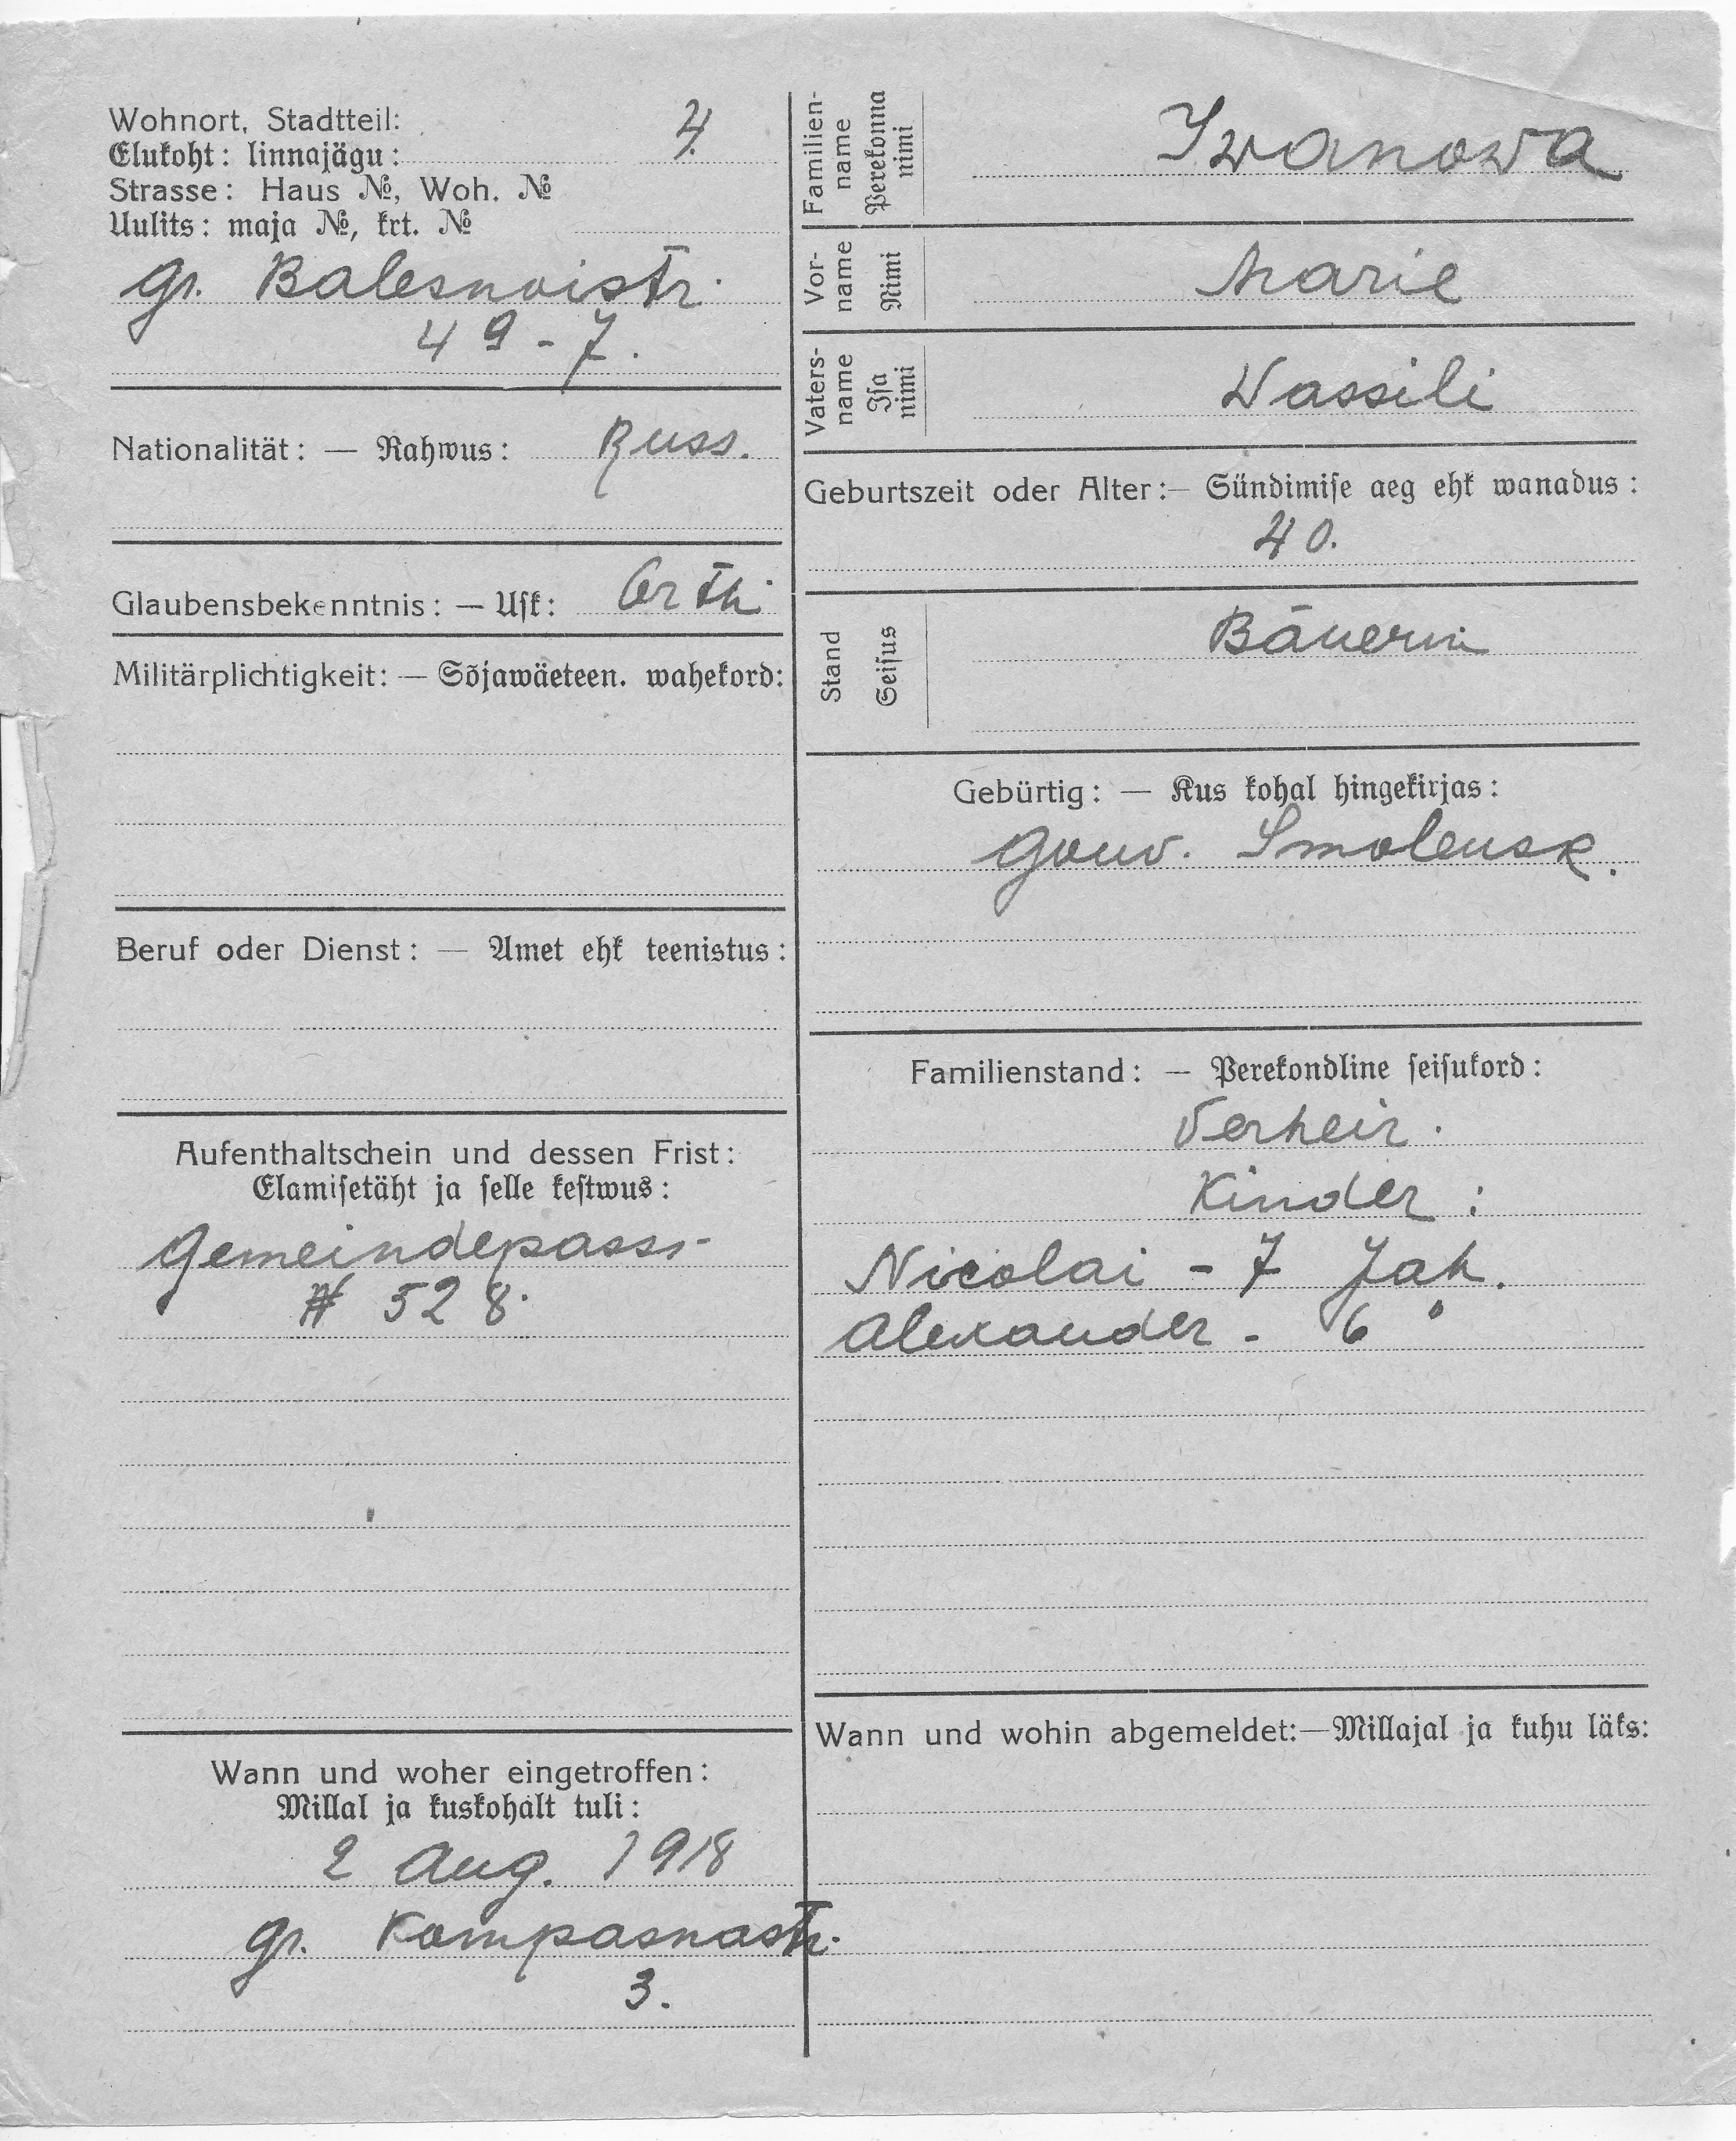 Wohnort, Stadtteil:
Elukoht: linnajägu: 4.
Strasse: Haus №, Woh. №
Uulits: maja №, krt. №
gr. Balesnoistr.
49-7.
Nationalität: — Rahwus: Russ.
Glaubensbekenntnis: — Usk: Orth.
Militärplichtigkeit: — Sõjawäeteen. wahekord:
Beruf oder Dienst: — Amet ehk teenistus:
Aufenthaltschein und dessen Frist:
Elamisetäht ja selle kestwus:
Gemeindepass-
# 528.
Wann und woher eingetroffen:
Millal ja kuskohalt tuli:
2 Aug. 1918
gr. Kompasnastr.
3.
Familien-
name
Perekonna
nimi
Iwanowa
Vor-
name
Nimi
Marie
Vaters-
name
Isa
nimi
Wassili
Geburtszeit oder Alter:— Sündimise aeg ehk wanadus:
40.
Stand
Seisus
Bäuerin
Gebürtig: — Kus kohal hingekirjas:
Gouv. Smolensk.
Familienstand: — Perekondline seisukord:
Verheir.
Kinder:
Nicolai - 7 Jah.
Alexander - 6 "
Wann und wohin abgemeldet:—Millajal ja kuhu läks: